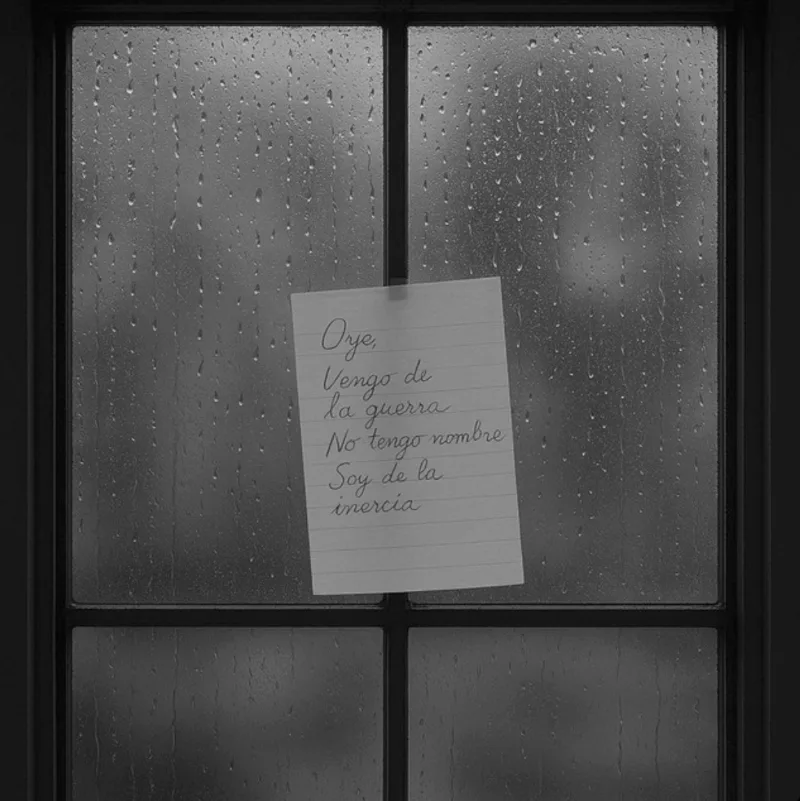 Oye,
Vengo de
la guerra
No tengo nombre
Soy de la
inercia